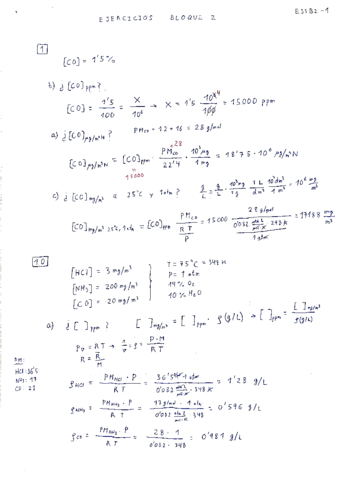 EJERCICIOS BLOQUE 2
EJ1B2-1
1
[CO] = 1'5%
b) ¿ [CO]ppm ?
[CO] = 1'5/100 = X/10⁶ → X = 1'5 · 10⁶⁴/100 = 15000 ppm
a) ¿ [CO]µg/m³N ? PMco = 12 + 16 = 28 g/mol
[CO]µg/m³N = [CO]ppm · PMco/22'4 · 10³µg/1mg = 18'75 · 10⁶ µg/m³N
28
15000
c) ¿ [CO]mg/m³ a 25°C y 1atm ? g/L = g/L · 10³mg/1g · 1L/dm³ · 10³dm³/1m³ = 10⁶ mg/m³
[CO]mg/m³ 25°C, 1atm = [CO]ppm · PMco/(RT/P) = 15000 · 28 g/mol
= 17188 mg/m³
10
[HCl] = 3 mg/m³
[NH₃] = 200 mg/m³
[CO] = 20 mg/m³
T = 75°C = 348K
P = 1 atm
14% O₂
10% H₂O
a) ¿ [ ]ppm ? [ ]mg/m³ = [ ]ppm · ρ(g/L) → [ ]ppm = [ ]mg/m³/ρ(g/L)
PM:
HCl: 36'5
NH₃: 17
CO: 28
Pv = RT → 1/v = ρ = P·M/RT
R = R/M
ρHCl = PMHCl · P/RT = 36'5 · 1 atm/0'082 · 348K = 1'28 g/L
ρNH₃ = PMNH₃ · P/RT = 17g/mol · 1 atm/0'082 · 348 = 0'596 g/L
ρCO = PMco · P/RT = 28 · 1/0'082 · 348 = 0'981 g/L